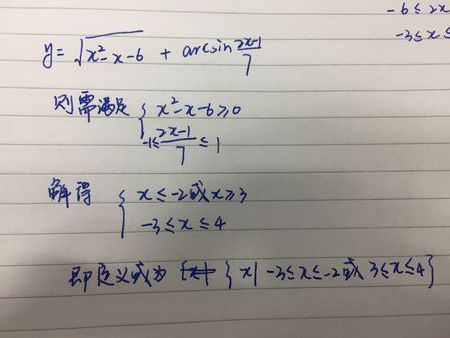 -6≤2x
-3≤x≤
y=√(x²-x-6) + arcsin (2x-1)/7
则需满足 { x²-x-6≥0
-1≤(2x-1)/7≤1
解得 { x≤-2或x≥3
-3≤x≤4
即定义域为 {x| -3≤x≤-2或3≤x≤4}